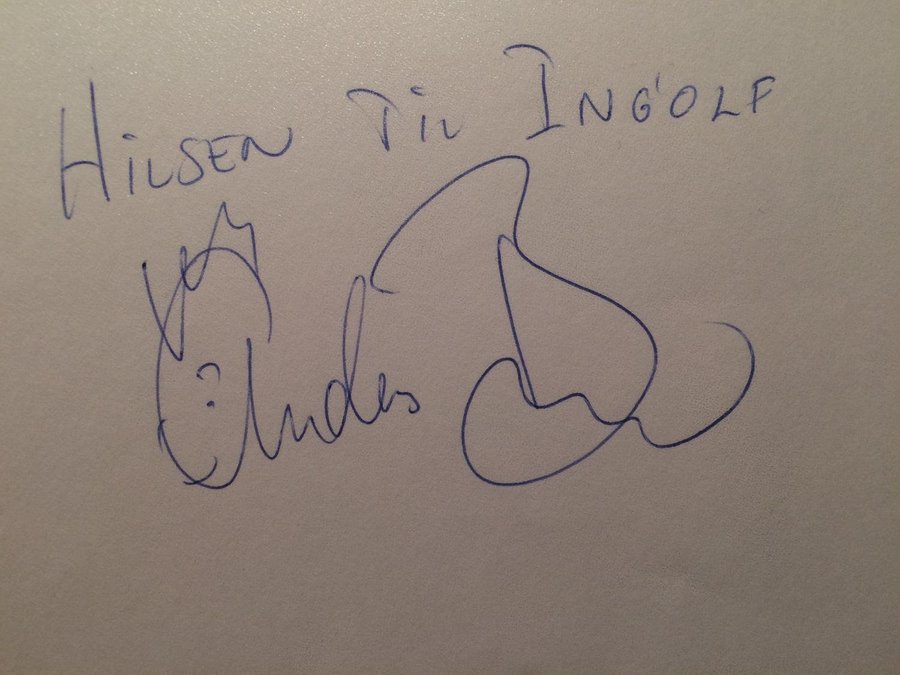 HILSEN TIL INGOLF
Anders